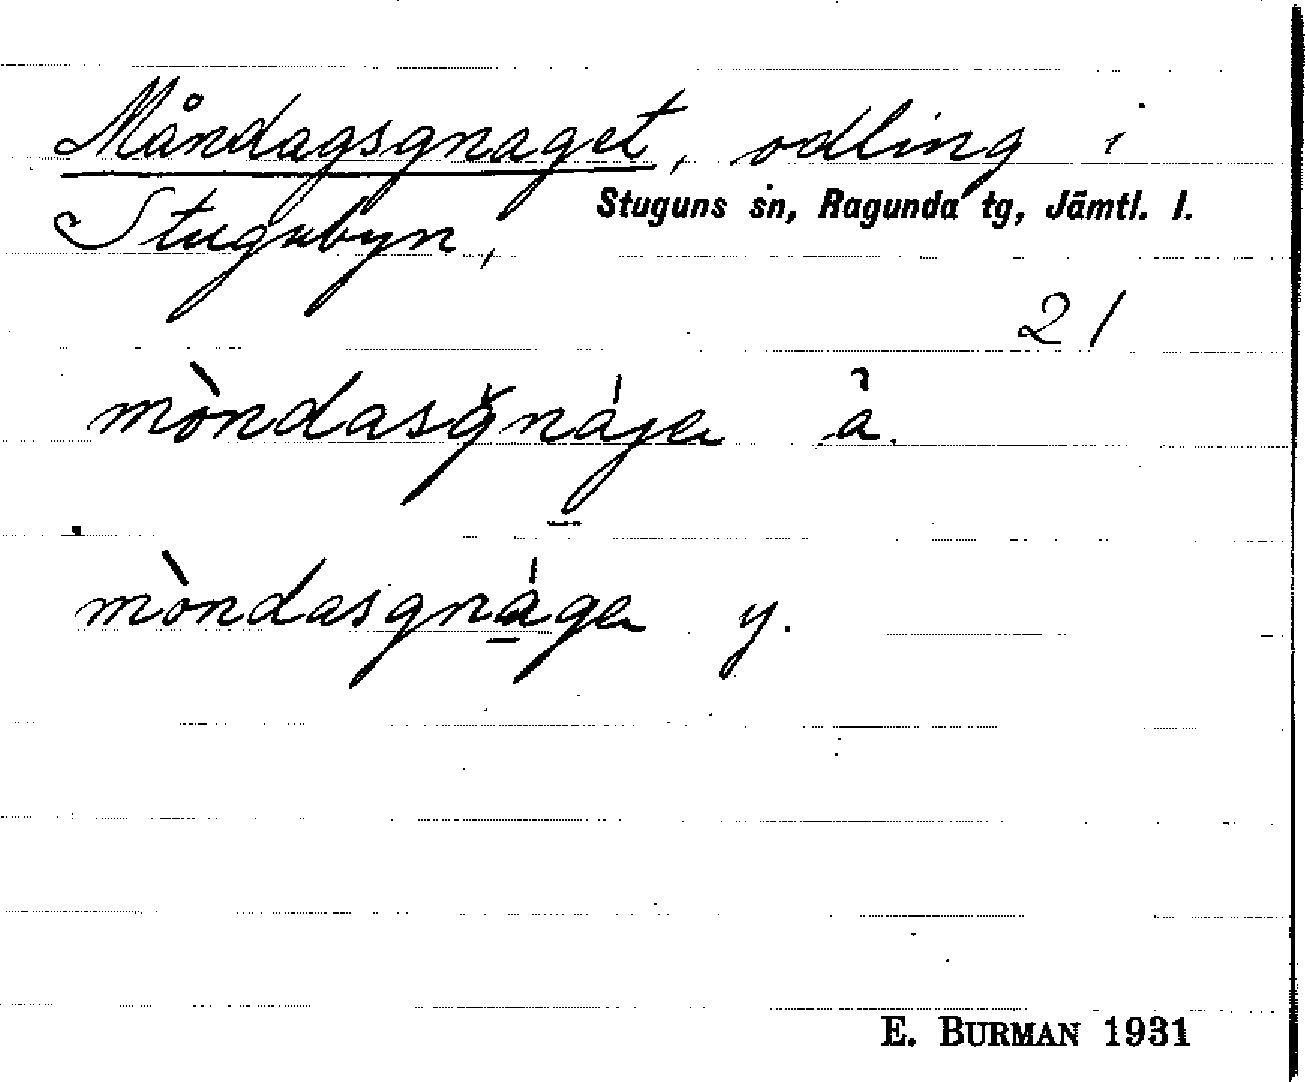 Måndagsgnaget, odling i
Stuguns sn, Ragunda tg, Jämtl. l.
Stugubyn,
21
mòndasgnáge å.
mòndasgnáge y.
E. BURMAN 1931